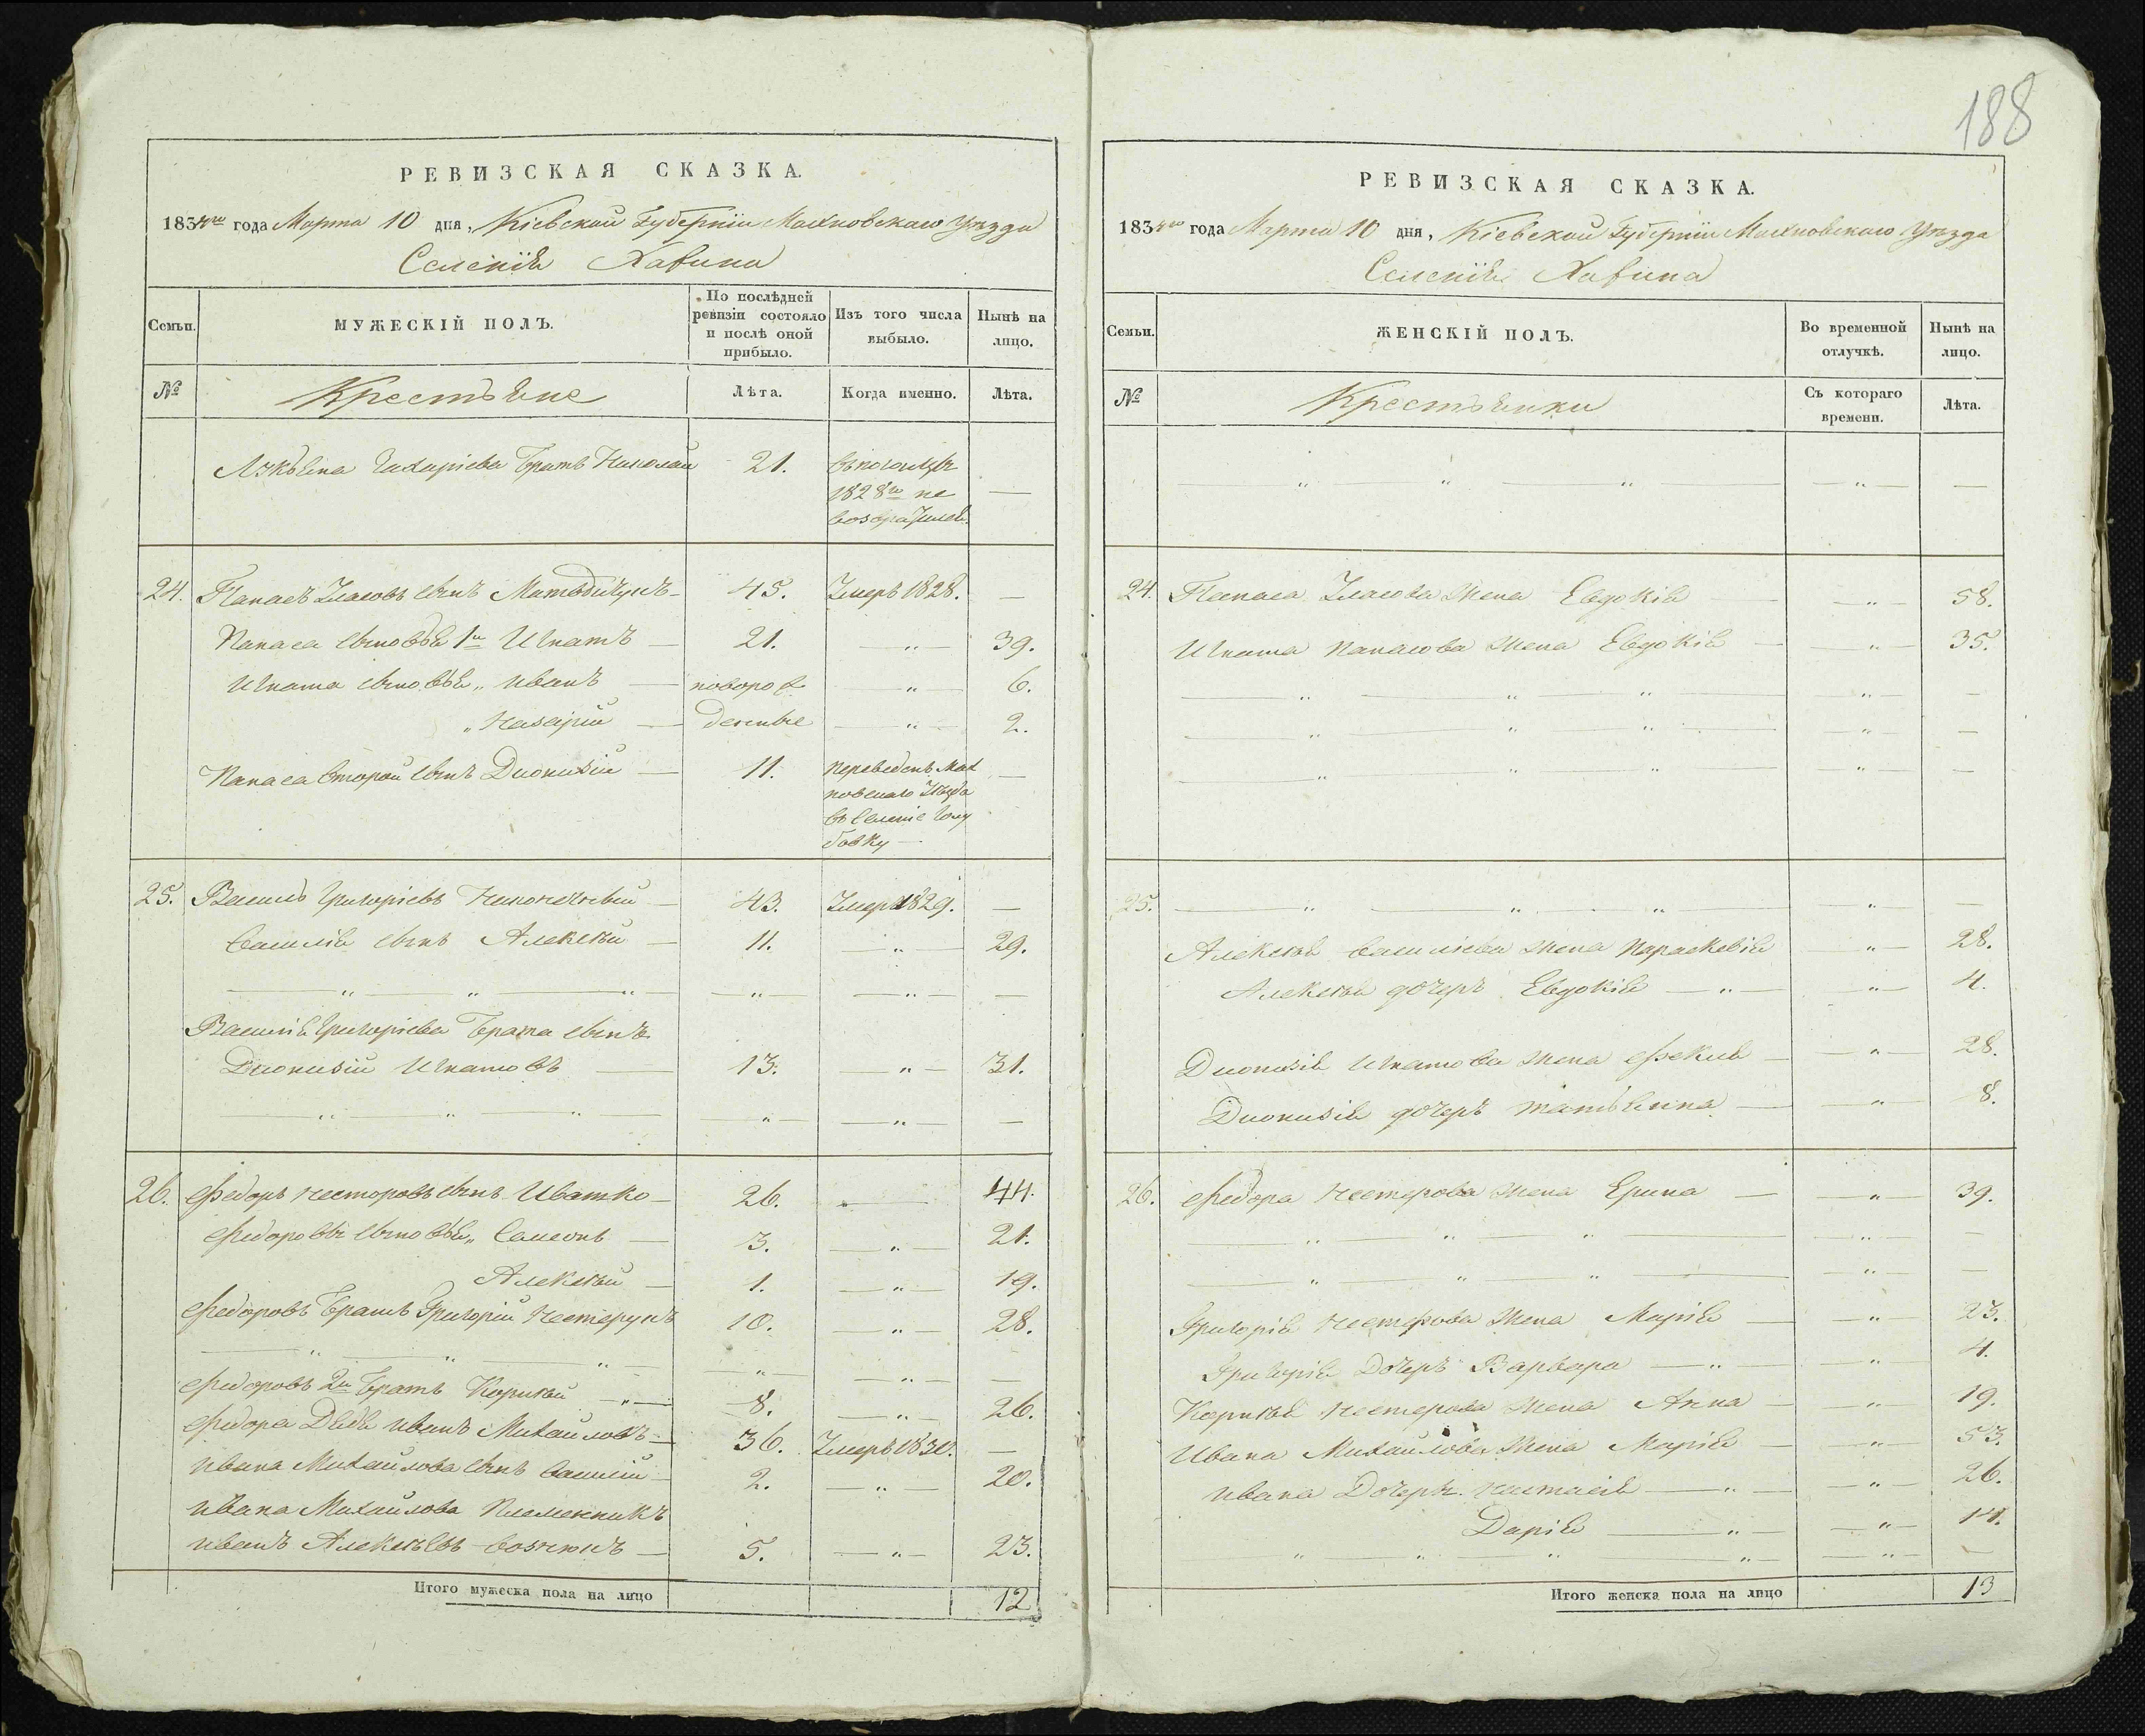 188
РЕВИЗСКАЯ СКАЗКА.
1834го года Марта 10 дня, Кіевской Губерніи Махновскаго Уѣзда
Селенія Хавина
Семьи.
МУЖЕСКІЙ ПОЛЪ.
По послѣдней ревизіи состояло и послѣ оной прибыло.
Изъ того числа выбыло.
Нынѣ на лицо.
№
Крестьяне
Лѣта.
Когда именно.
Лѣта.
Захаріева Братъ Николай 21. 1828го не возвратился —
24. Панасъ Уласовъ сынъ 45. Умеръ 1828. —
Панаса сыновья 1й Игнатъ — 21. — " — 39.
Игната сыновья „ Иванъ — новорож — " — 6.
„ Назарій — денные — " — 2.
Панаса второй сынъ Дионизій — 11. переведенъ Мах —
новскаго Уѣзда
в селеніе Голу
бовку —
25. Василь Григоріевъ 43. Умеръ 1829. —
Василія сынъ Алексѣй — 11. — " — 29.
— " — " — " — " — " — —
Василія Григоріева Брата сынъ
Дионизій Игнатовъ — 13. — " — 31.
— " — " — " — " — " — —
26. Федоръ Несторовъ сынъ Иватко — 26. — 44.
Федоровы сыновья „ Самсонъ — 3. — " — 21.
Алексѣй — 1. — " — 19.
Федоровъ Братъ Григорій Нестерукъ 10. — " — 28.
— " — " — " — " — " — —
Федоровъ 2й Братъ Корнѣй — " — 8. — " — 26.
Федора Дядя Иванъ Михайловъ — 36. Умеръ 1830. —
Ивана Михайлова сынъ Василій — 2. — " — 20.
Ивана Михайлова Племенникъ
Иванъ Алексѣевъ — 5. — " — 23.
Итого мужеска пола на лицо 12
РЕВИЗСКАЯ СКАЗКА.
1834го года Марта 10 дня, Кіевской Губерніи Махновскаго Уѣзда
Селенія Хавина
Семьи.
ЖЕНСКІЙ ПОЛЪ.
Во временной отлучкѣ.
Нынѣ на лицо.
№
Крестьянки
Съ котораго времени.
Лѣта.
— " — " — " — " — —
24. Панаса Уласова жена Евдокія — " — 58.
Игната Панасова жена Евдокія — " — 35.
— " — " — " — " — —
— " — " — " — " — —
— " — " — " — " — —
25. — " — " — " — " — —
Алексѣя Васильева жена Параскевія — " — 28.
Алексѣя дочерь Евдокія — " — " — 4.
Дионизія Игнатова жена Фекла — " — 28.
Дионизія дочерь Татьянна — " — 8.
26. Федора Нестерова жена Ерина — " — 39.
— " — " — " — " — —
— " — " — " — " — —
Григорія Нестерова жена Марія — " — 23.
Григорія Дочерь Варвара — " — " — 4.
Корнѣя Нестерова жена Анна — " — 19.
Ивана Михайлова жена Марія — " — 53.
Ивана Дочери Настасія — " — " — 26.
Дарія — " — " — 14.
— " — " — " — " — " — —
Итого женска пола на лицо 13